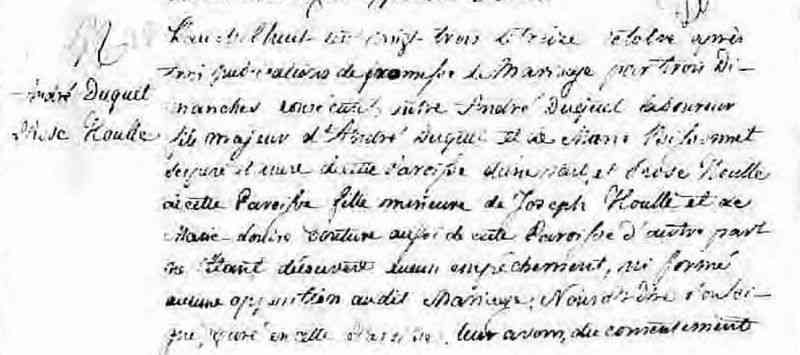 L'an mil huit cent vingt trois le treize octobre après
André Duquet
trois publications de promesse de Mariage par trois Di-
manches consécutifs entre André Duquet laboureur
Rose Houlle
fils majeur d'André Duquet et de Marie Bissonnet
de cette Paroisse d'une part, et Rose Houlle
de cette Paroisse fille mineure de Joseph Houlle et de
Marie Louise Couture aussi de cette Paroisse d'autre part
ne s'étant découvert aucun empêchement, ni formé
aucune opposition audit Mariage, Nous Prêtre soussi-
gné, curé en cette Paroisse, leur avons, du consentement